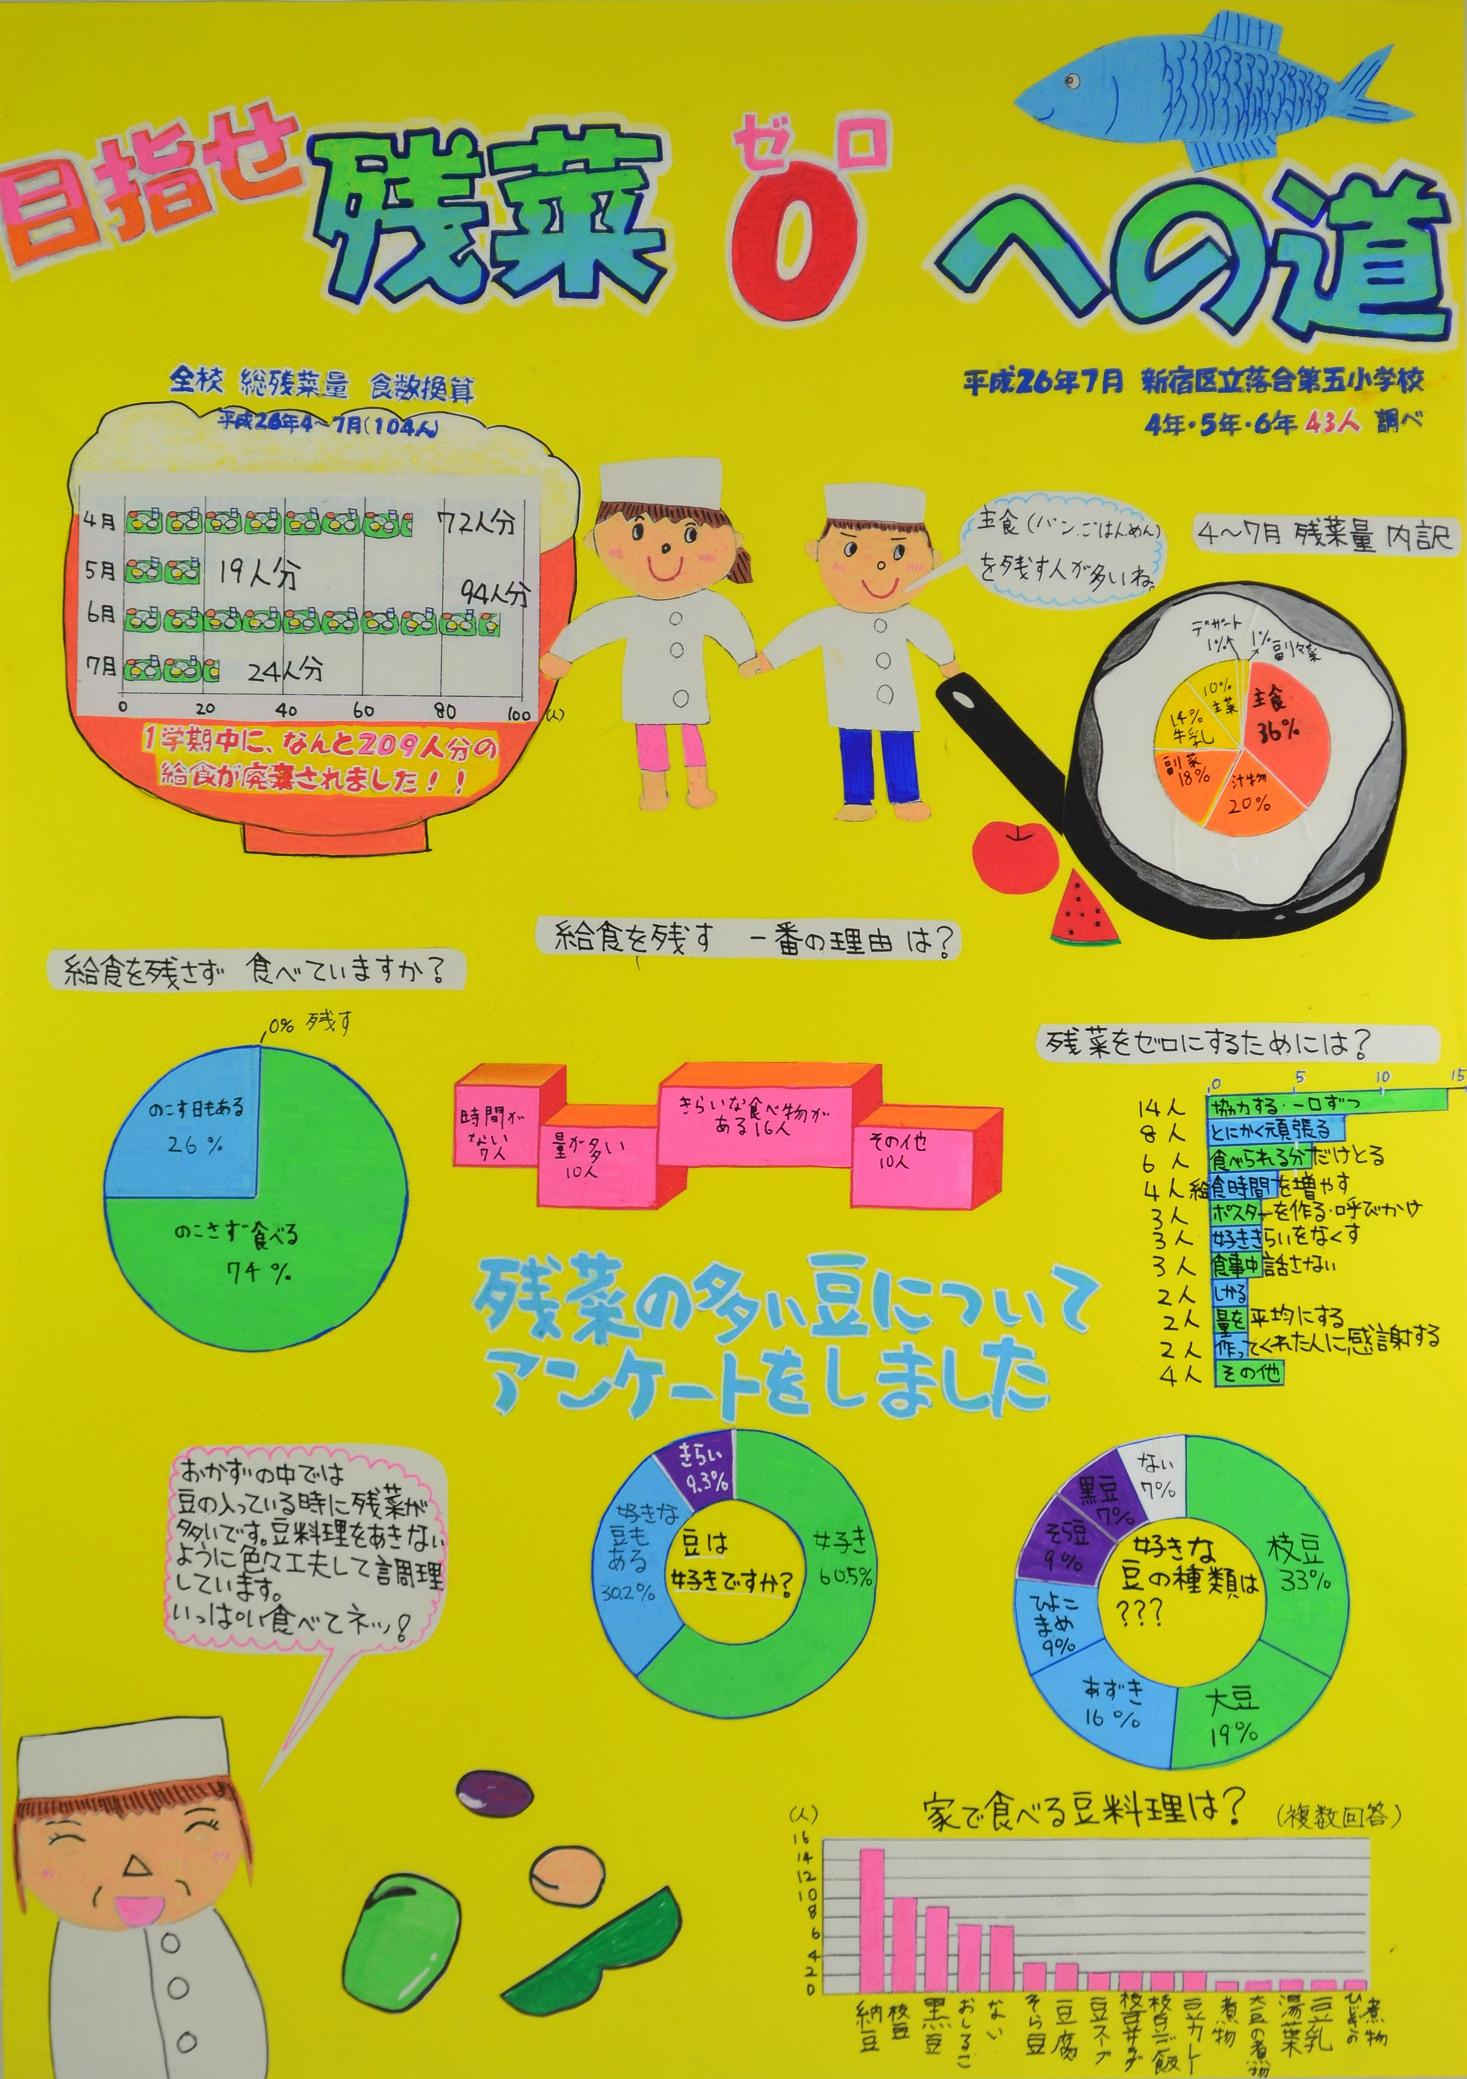 目指せ 残菜 0 への道
ゼロ
全校 総残菜量 食数換算
平成26年4～7月(104人)
4月 72人分
5月 19人分
6月 94人分
7月 24人分
0 20 40 60 80 100 (人)
1学期中に、なんと209人分の
給食が廃棄されました！！
平成26年7月 新宿区立落合第五小学校
4年・5年・6年 43人 調べ
主食(パン.ごはんめん)
を残す人が多いね。
4～7月 残菜量 内訳
デザート
1%
1% 副々菜
主食
36%
汁物
20%
副菜
18%
14%
牛乳
10%
主菜
給食を残さず 食べていますか？
0% 残す
のこす日もある
26%
のこさず食べる
74%
給食を残す 一番の理由は？
時間が
ない
7人
量が多い
10人
きらいな食べ物が
ある16人
その他
10人
残菜をゼロにするためには？
0 5 10 15
14人 協力する・一口ずつ
8人 とにかく頑張る
6人 食べられる分だけとる
4人 給食時間を増やす
3人 ポスターを作る・呼びかけ
3人 好ききらいをなくす
3人 食事中話さない
2人 しかる
2人 量を平均にする
2人 作ってくれた人に感謝する
4人 その他
残菜の多い豆について
アンケートをしました
おかずの中では
豆の入っている時に残菜が
多いです。豆料理をあきない
ように色々工夫して調理
しています。
いっぱい食べてネッ！
豆は
好きですか？
好き
60.5%
好きな
豆も
ある
30.2%
きらい
9.3%
好きな
豆の種類は
???
枝豆
33%
大豆
19%
あずき
16%
ひよこ
まめ
9%
そら豆
9%
黒豆
7%
ない
7%
家で食べる豆料理は？ (複数回答)
(人)
16
14
12
10
8
6
4
2
0
納豆
枝豆
黒豆
おしるこ
ない
そら豆
豆腐
豆スープ
枝豆サラダ
枝豆ご飯
豆カレー
煮物
大豆の煮物
湯葉
豆乳
ひじきの煮物